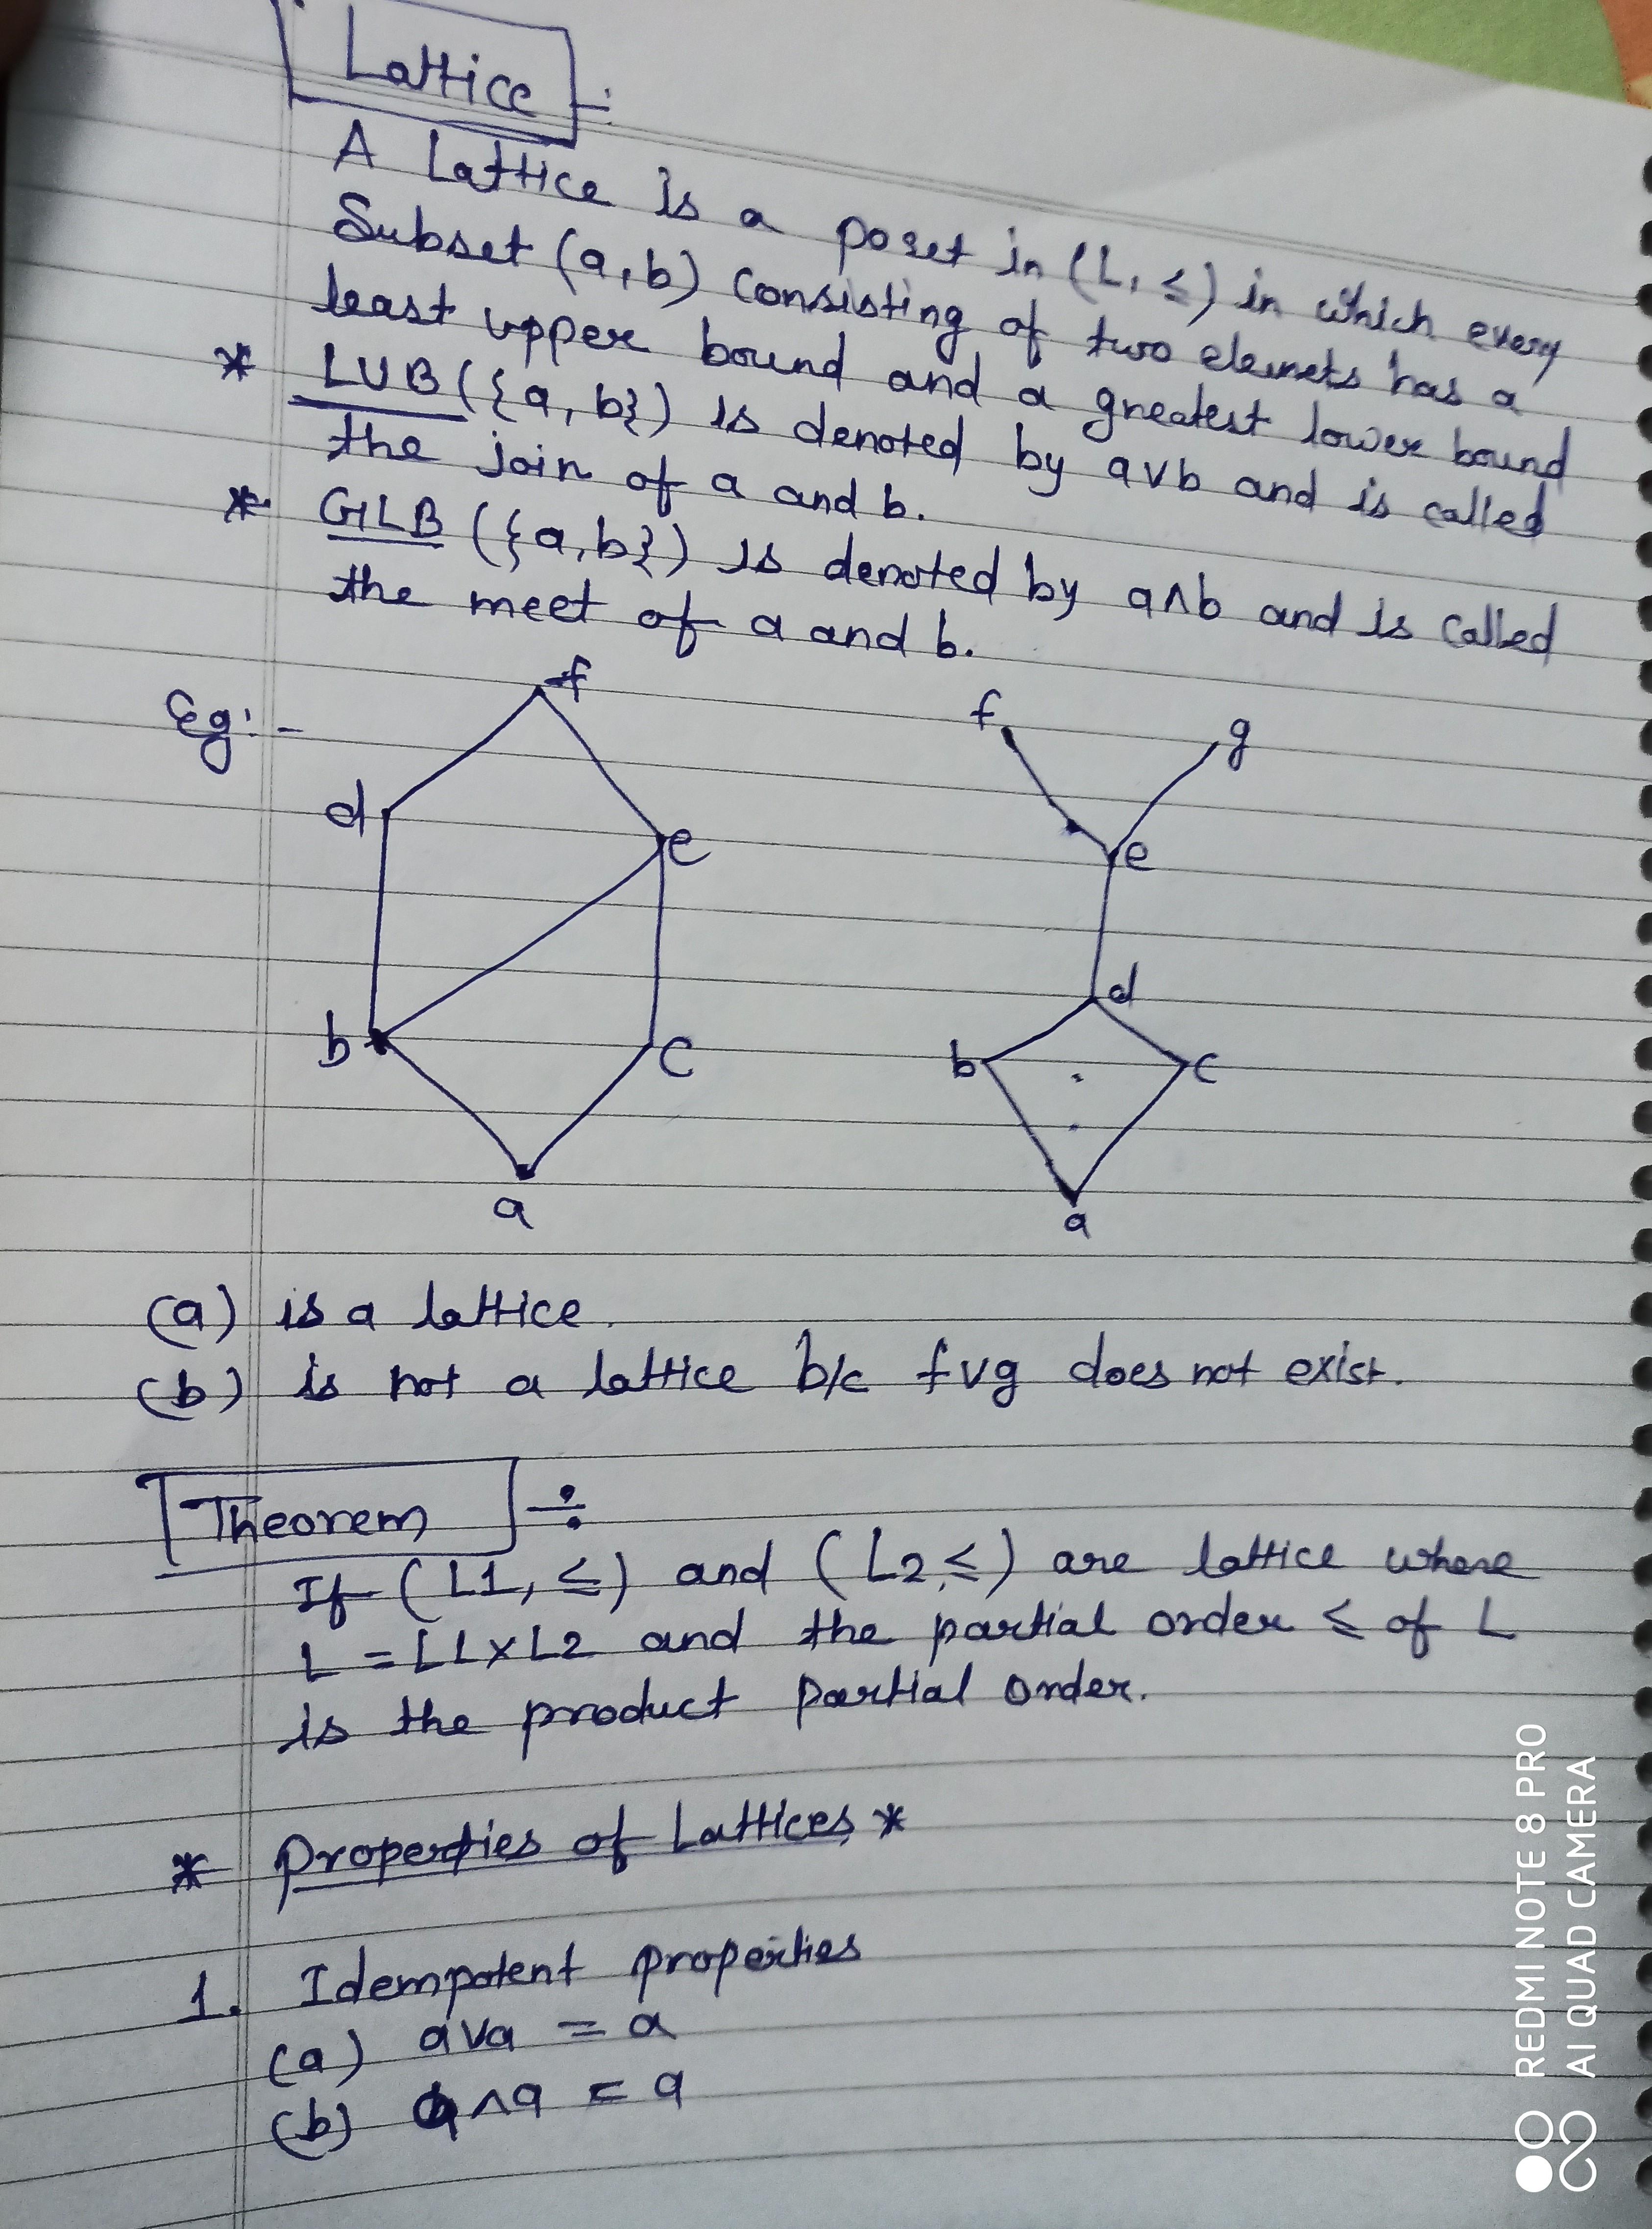 Lattice :-
A Lattice is a poset in (L, ≤) in which every
Subset (a, b) consisting of two elemets has a
least upper bound and a greatest lower bound
* LUB({a, b}) is denoted by a∨b and is called
the join of a and b.
* GLB ({a,b}) is denoted by a∧b and is called
the meet of a and b.
Eg:-
f
d
e
b
c
a
f
g
e
d
b
c
a
(a) is a lattice.
(b) is not a lattice b/c f∨g does not exist.
Theorem ÷
If (L1, ≤) and (L2, ≤) are lattice where
L = L1×L2 and the partial order ≤ of L
is the product partial order.
* Properties of Lattices *
1. Idempotent properties
(a) a∨a = a
(b) a∧a = a
REDMI NOTE 8 PRO
AI QUAD CAMERA